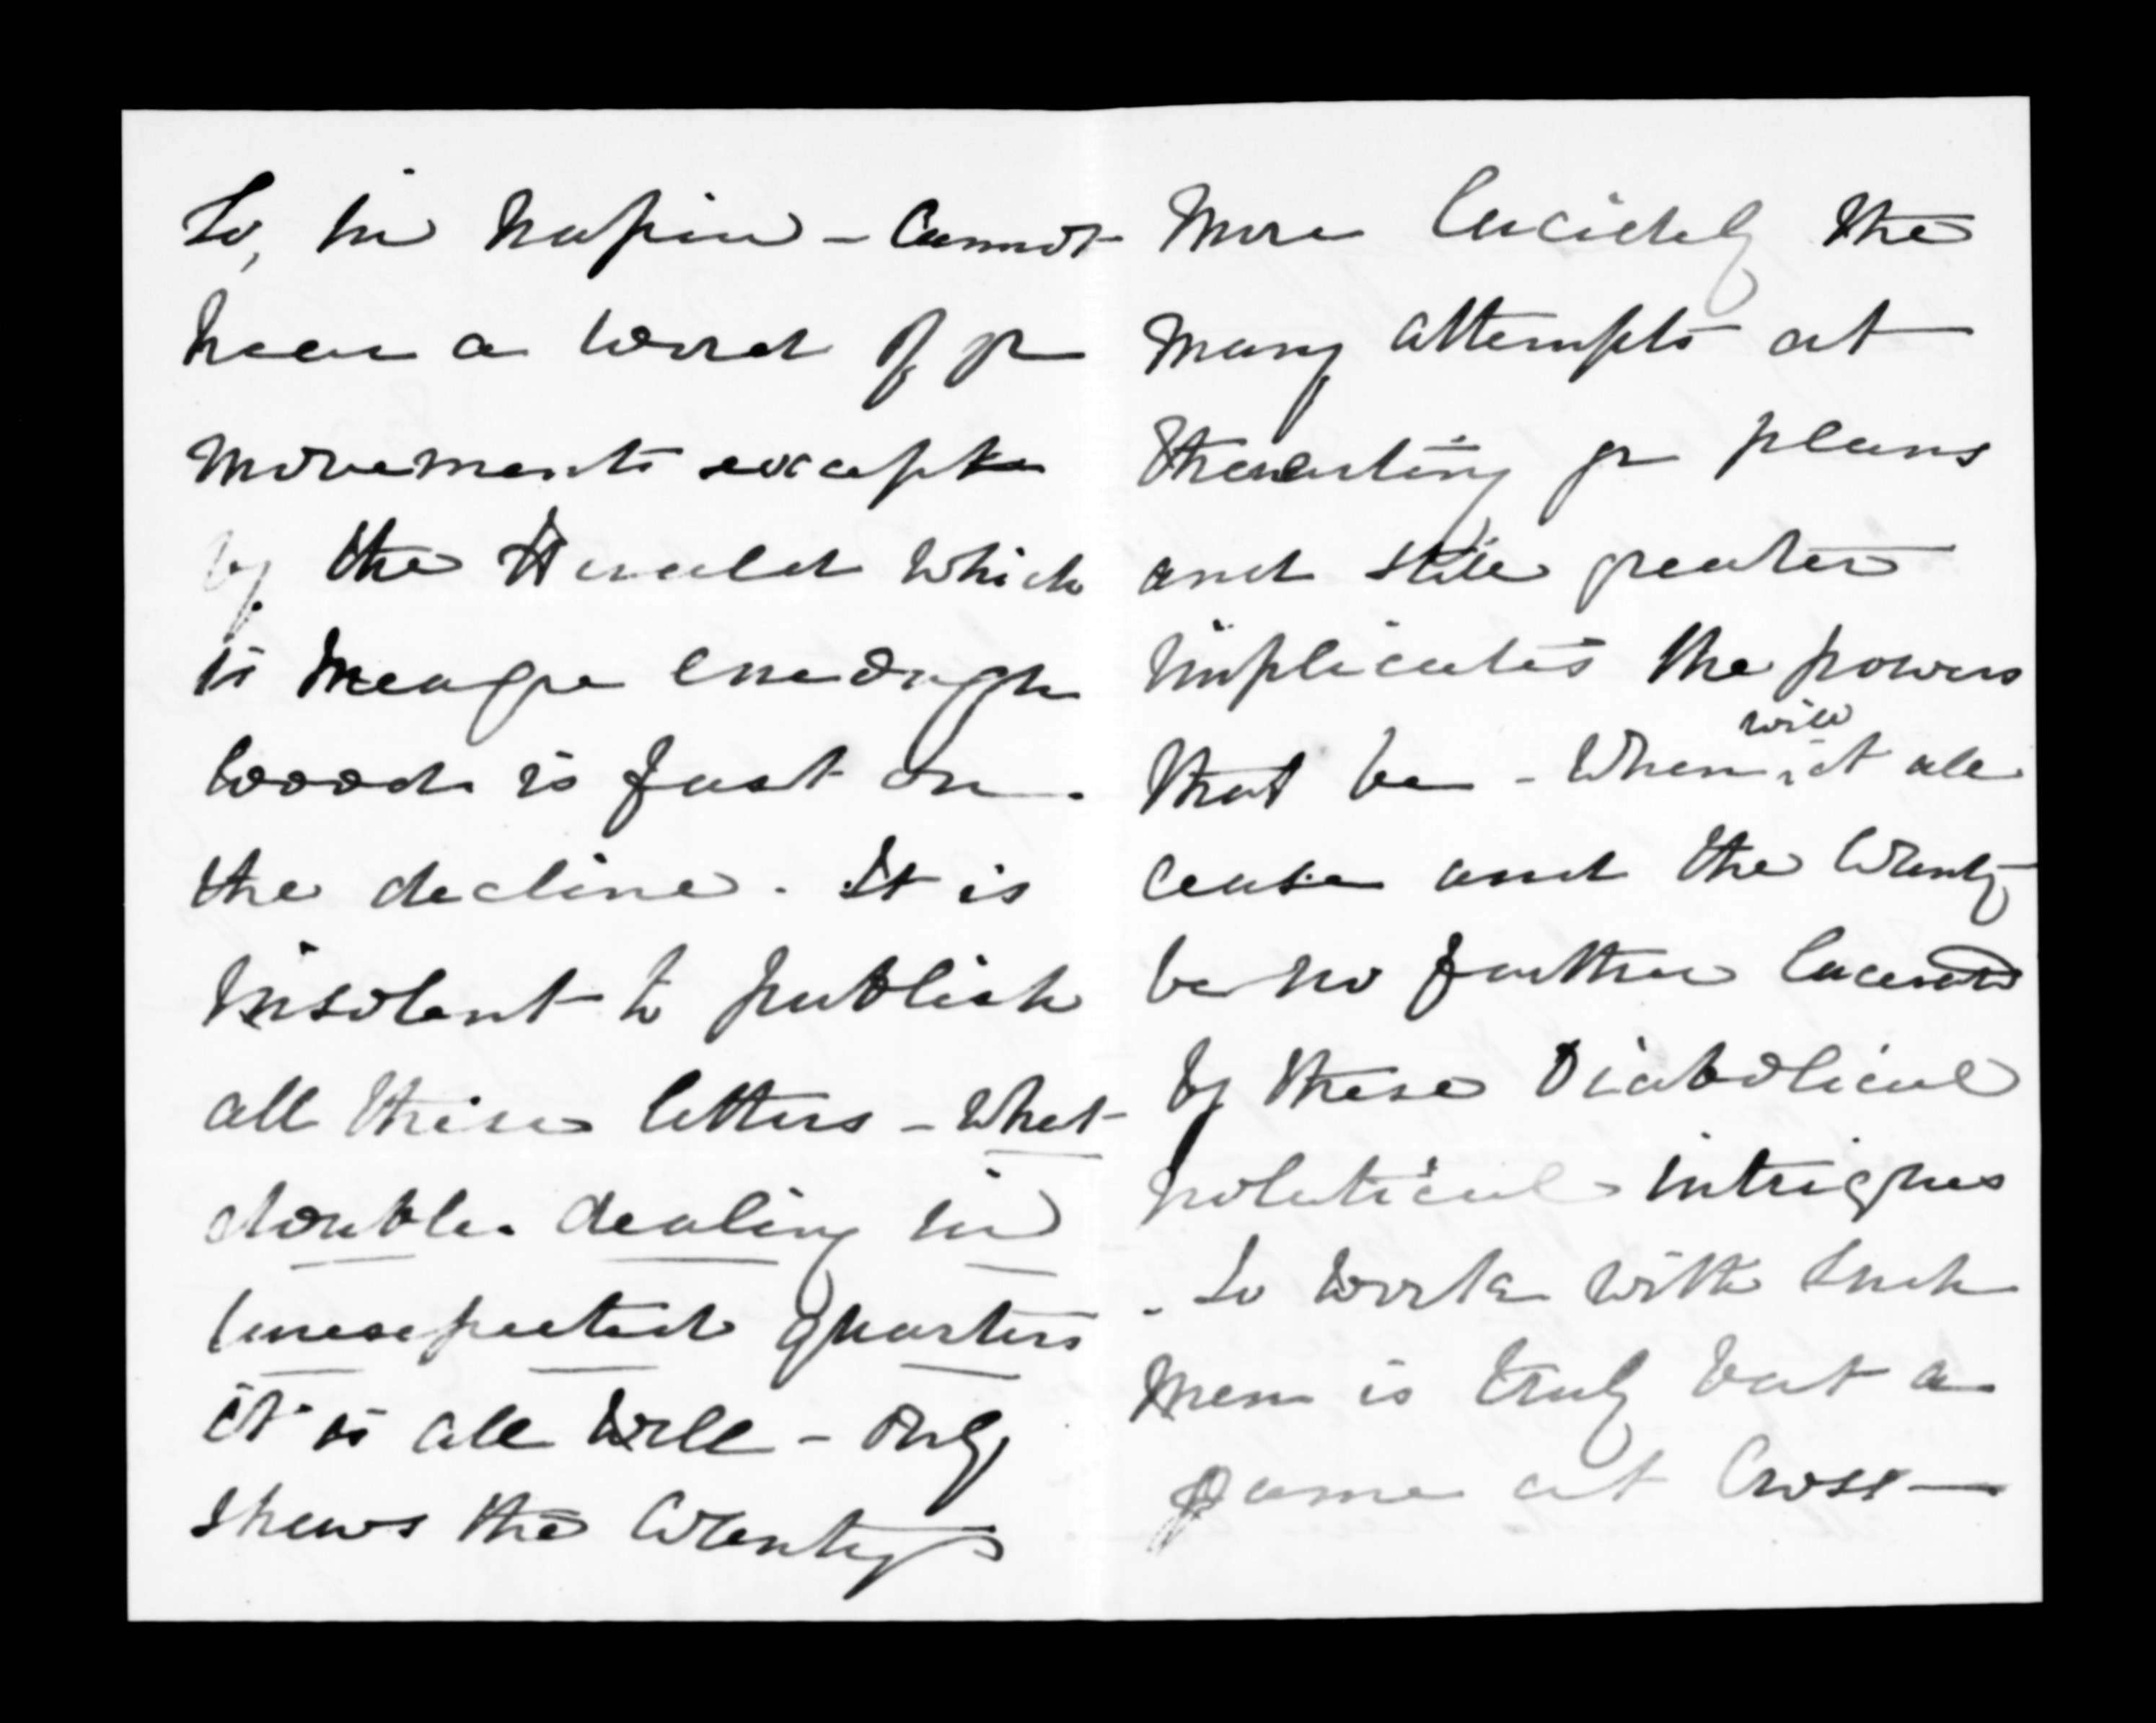 So, in Napier - Cannot
hear a word of yr
movements except
by the Herald which
is meagre enough
Wood is fast on
the decline. It is
insolent to publish
all these letters - What
double dealing in
unexpected quarters
it is all well - only
shews the Country
More lucidely the
many attempts at
thwarting yr plans
and still greater
implicates the powers
that be - When will it all
cease and the Country
be no further lacerated
by these Diabolical
political intrigues
- To work with such
men is truly but a
game at Cross-